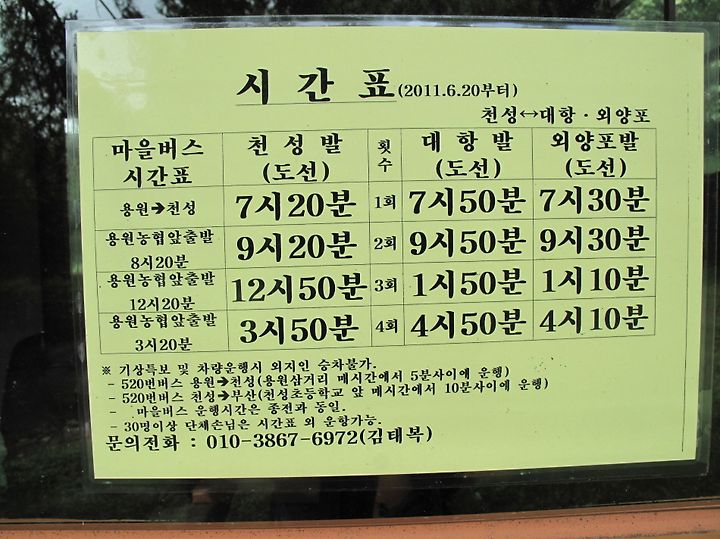 시 간 표(2011.6.20부터)
천성↔대항·외양포
마을버스 시간표 천 성 발 (도선) 횟수 대 항 발 (도선) 외양포발 (도선)
용원➔천성 7시20분 1회 7시50분 7시30분
용원농협앞출발 8시20분 9시20분 2회 9시50분 9시30분
용원농협앞출발 12시20분 12시50분 3회 1시50분 1시10분
용원농협앞출발 3시20분 3시50분 4회 4시50분 4시10분
※ 기상특보 및 차량운행시 외지인 승차불가.
- 520번버스 용원➔천성(용원삼거리 메시간에서 5분사이에 운행)
- 520번버스 천성➔부산(천성초등학교 앞 메시간에서 10분사이에 운행)
- 마을버스 운행시간은 종전과 동일.
- 30명이상 단체손님은 시간표 외 운항가능.
문의전화 : 010-3867-6972(김태복)